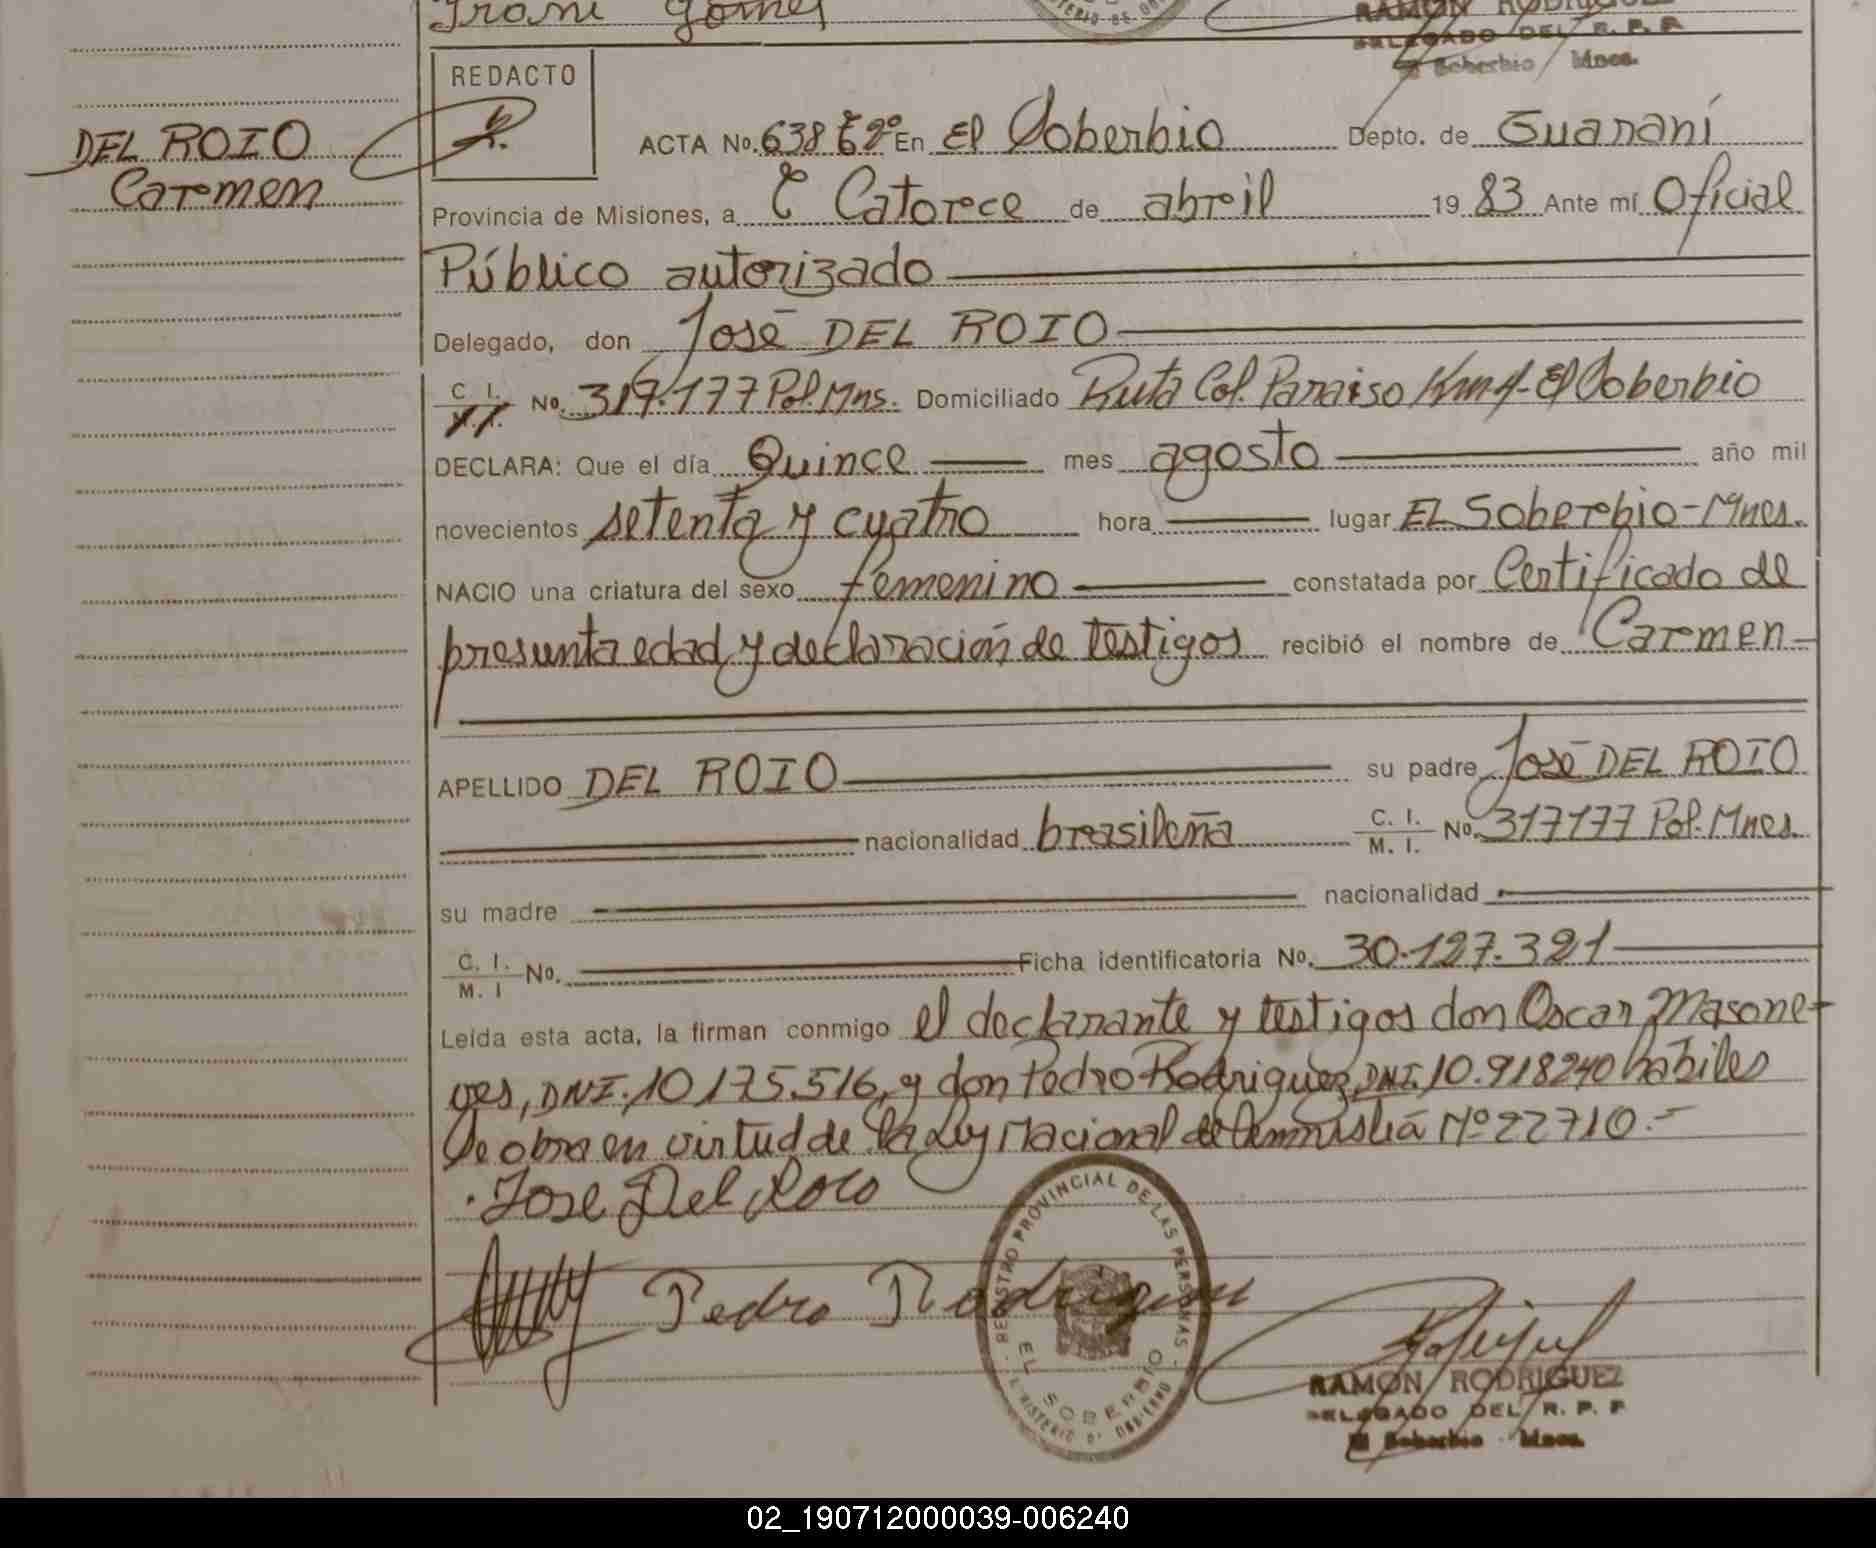 Irani Gomes
RAMON RODRIGUEZ
DELEGADO DEL R. P. P
El Soberbio Mnes.
REDACTO
DEL ROIO
Carmen
ACTA No. 638 Tº 2º En El Soberbio Depto. de Guaraní
Provincia de Misiones, a Catorce de abril 1983 Ante mí Oficial
Público autorizado
Delegado, don José DEL ROIO
C. I. No. 317.177 Pol. Mns. Domiciliado Ruta Col. Paraiso Km 4 - El Soberbio
DECLARA: Que el día Quince mes agosto año mil
novecientos setenta y cuatro hora lugar EL Soberbio-Mnes.
NACIO una criatura del sexo femenino constatada por Certificado de
presunta edad y declaración de testigos recibió el nombre de Carmen
APELLIDO DEL ROIO su padre José DEL ROIO
nacionalidad brasileña C. I. M. I. No. 317177 Pol. Mnes.
su madre nacionalidad
C. I. M. I No. Ficha identificatoria No. 30.127.321
Leída esta acta, la firman conmigo el declarante y testigos don Oscar Masone-
ves, DNI. 10175.516, y don Pedro Rodriguez, DNI. 10.918240 hábiles
Se obra en virtud de la Ley Nacional de Amnistiá Nº 22710.-
Jose Del Roio
Pedro Rodriguez
REGISTRO PROVINCIAL DE LAS PERSONAS
EL SOBERBIO
MINISTERIO DE GOBIERNO
RAMON RODRIGUEZ
DELEGADO DEL R. P. P
El Soberbio - Mnes.
02_190712000039-006240